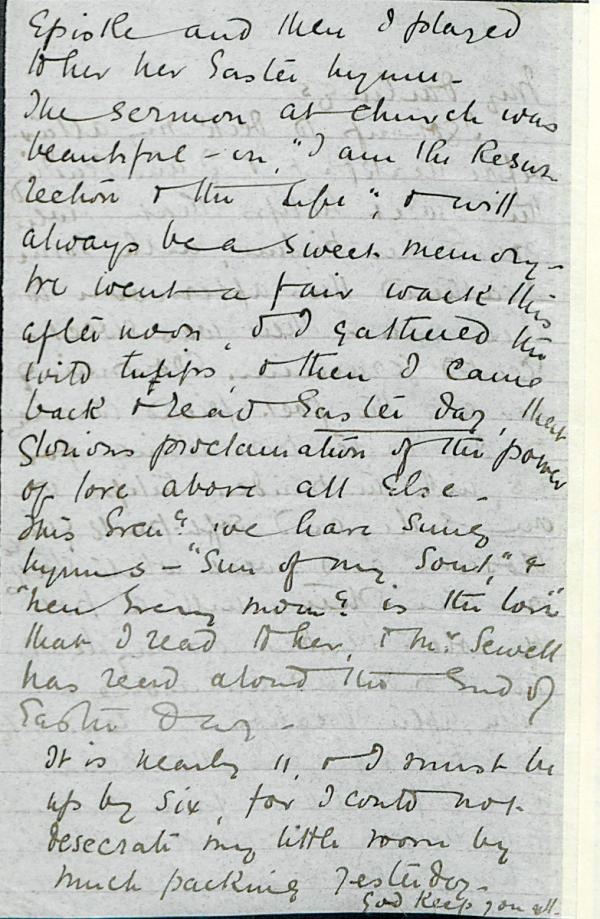 Epistle and then I played
to her her Easter hymn -
The sermon at church was
beautiful - on, "I am the Resur-
rection & the Life", & will
always be a sweet memory -
We went a fair walk this
afternoon, & I gathered the
wild tulips, & then I came
back & read Easter Day, that
glorious proclamation of the power
of love above all else -
This Eveng we have sung
hymns - "Sun of my Soul," &
"New Every morng is the love"
that I read to her, & Mr Sewell
has read aloud the End of
Easter Day -
It is nearly 11, & I must be
up by six, for I could not
desecrate my little room by
much packing yesterday -
God keep you all -